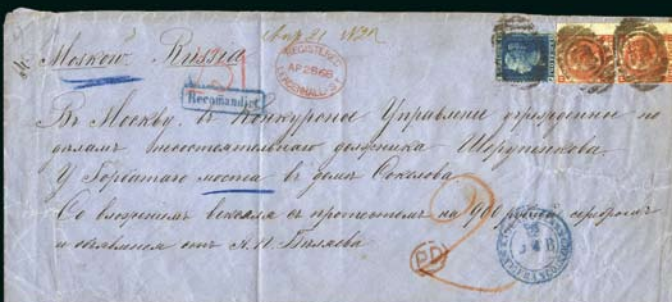 Moskow. Russia
REGISTERED
AP 28 68
Recomandirt
Въ Москву. въ Конкурсное Управленіе учрежденное по
дѣламъ несостоятельнаго должника Шерупенкова.
У Горбатаго моста въ домѣ Соколова.
Со вложеніемъ векселя съ протестомъ на 900 рублей серебромъ
и объявленіемъ отъ А. П. Биляева
PD
2